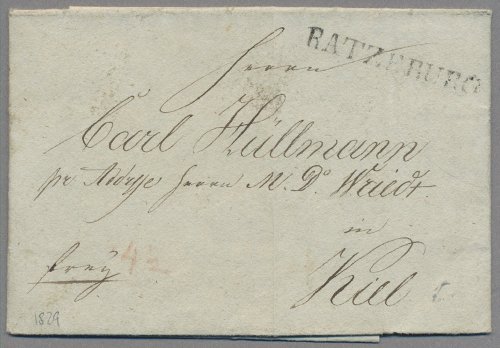 RATZEBURG
Herrn
Carl Hüllmann
pr Addresse Herrn M. Do. Wriedt
in
Kiel
frey
42
1829